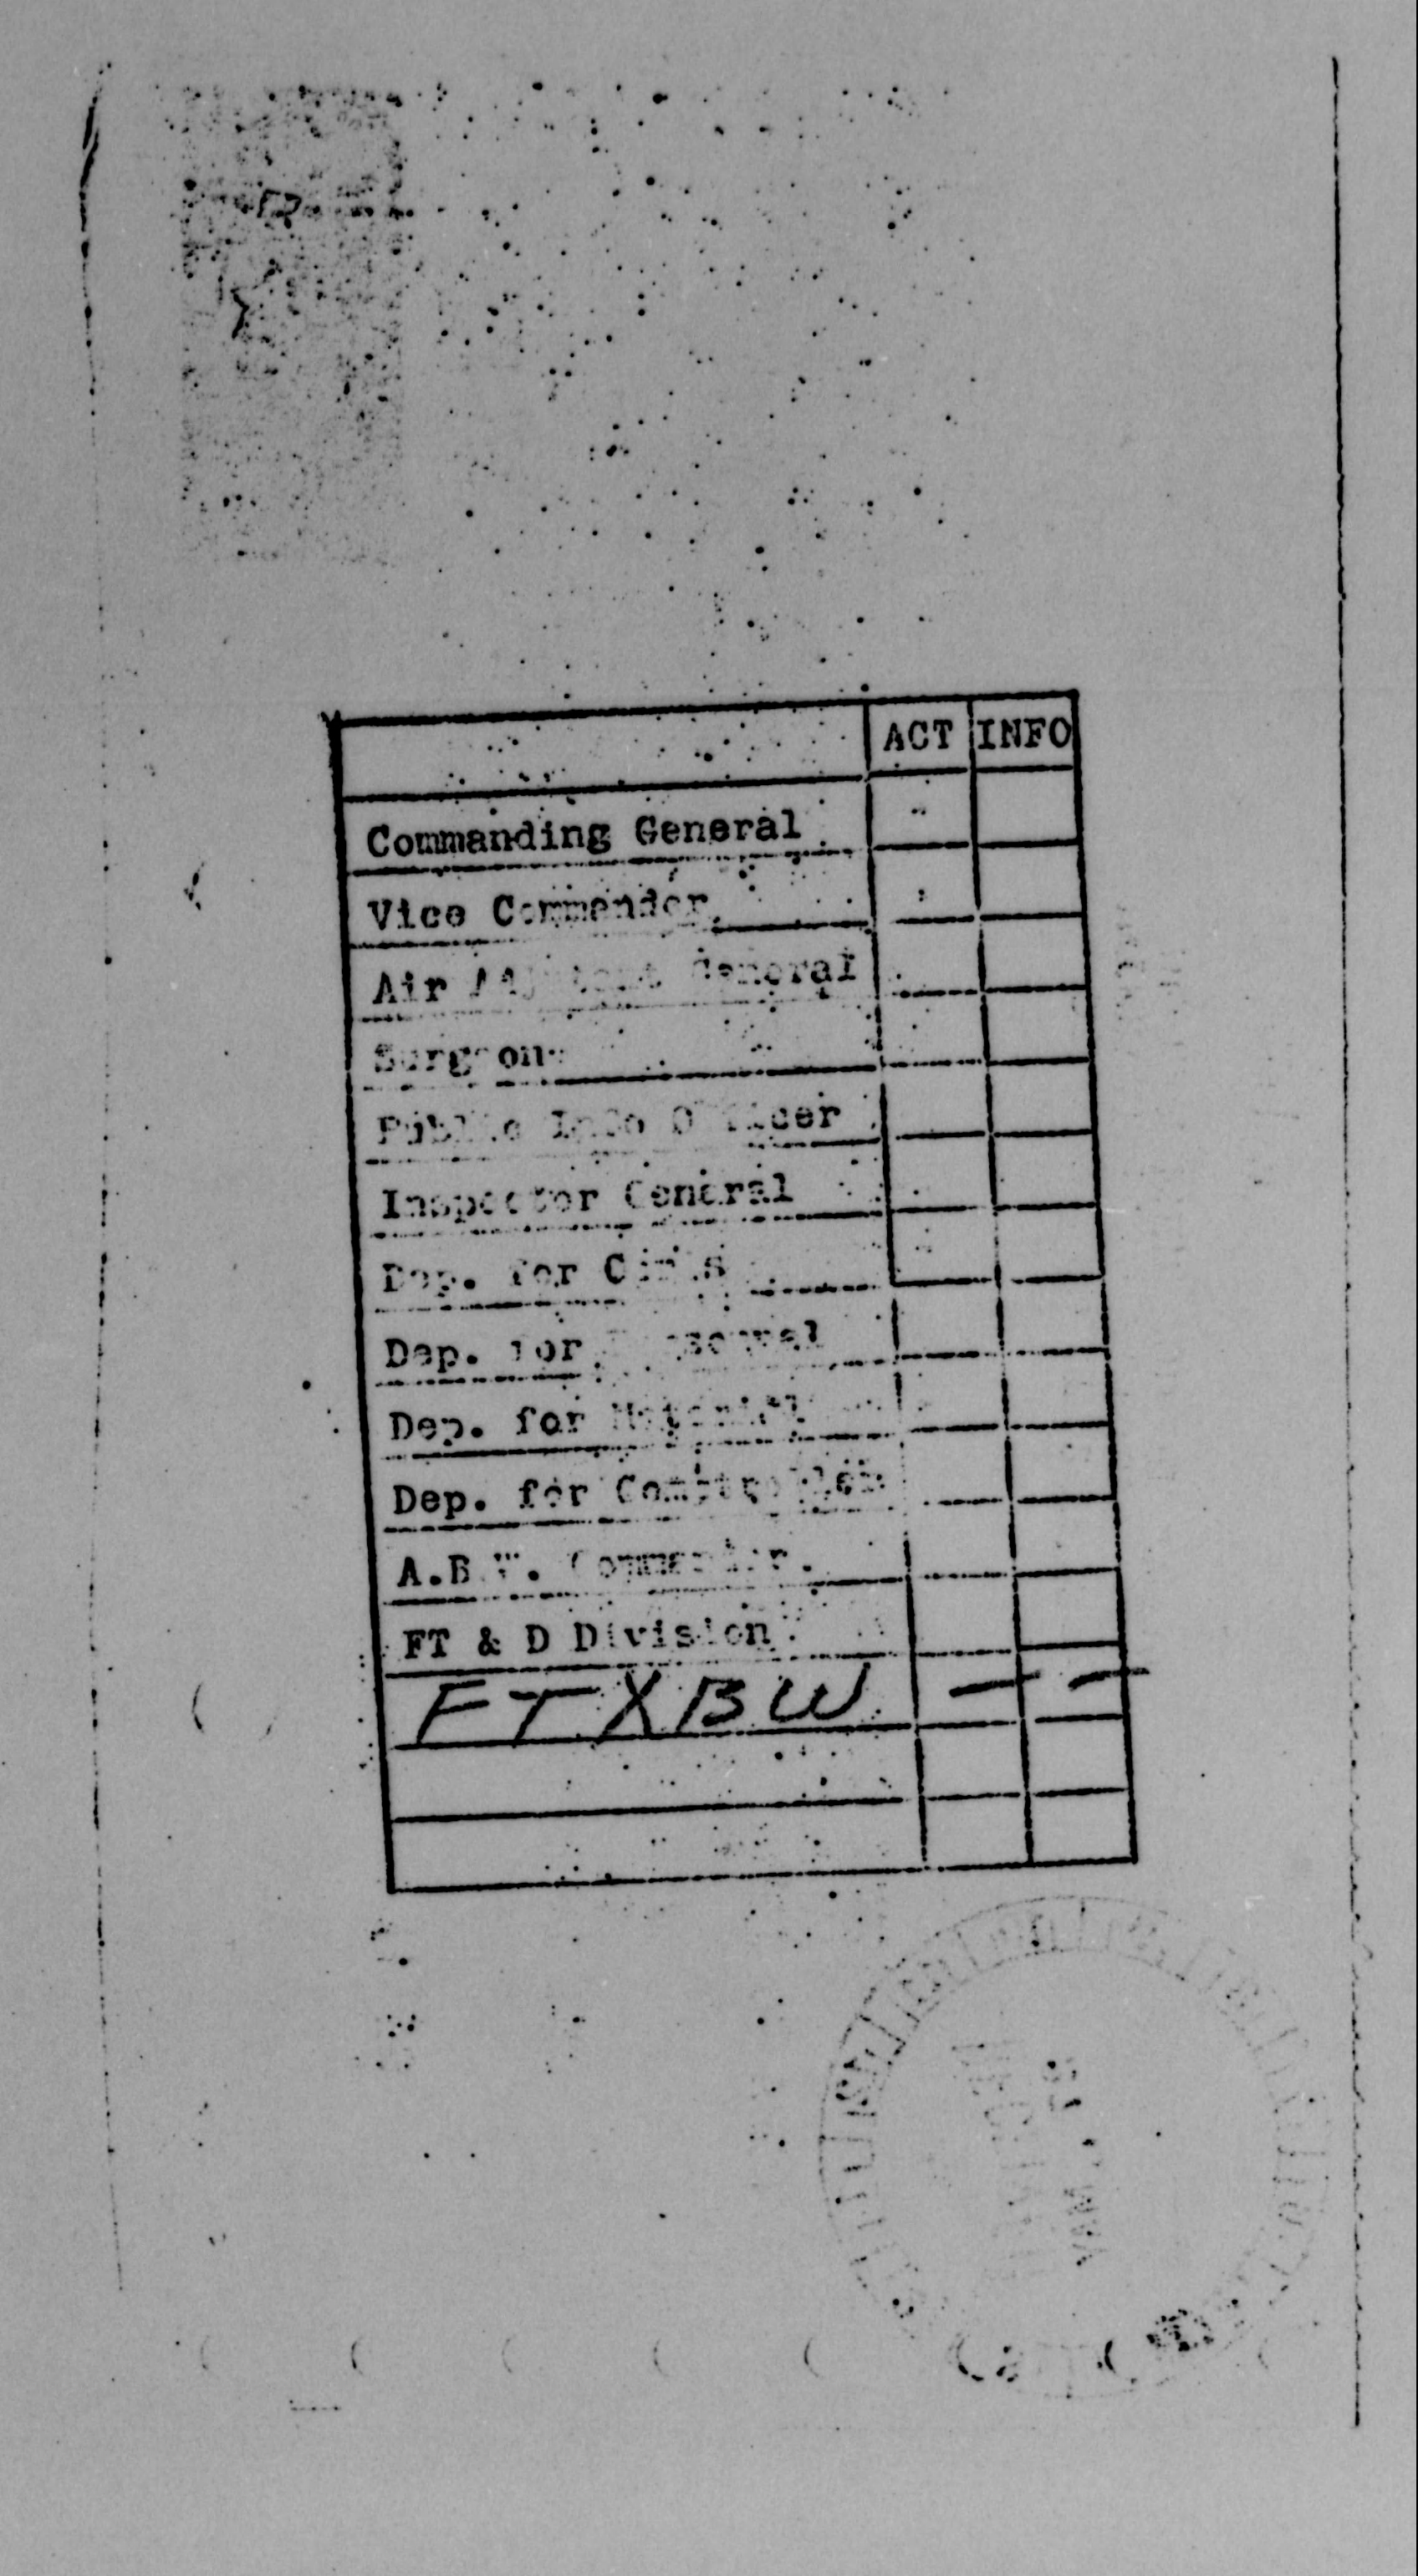 ACT INFO
Commanding General
Vice Commander
Air Adjutant General
Surgeon
Public Info Officer
Inspector General
Dep. for
Dep. for Personnel
Dep. for Materiel
Dep. for Comptroller
A.B.W. Commander
FT & D Division
FTXBW — —